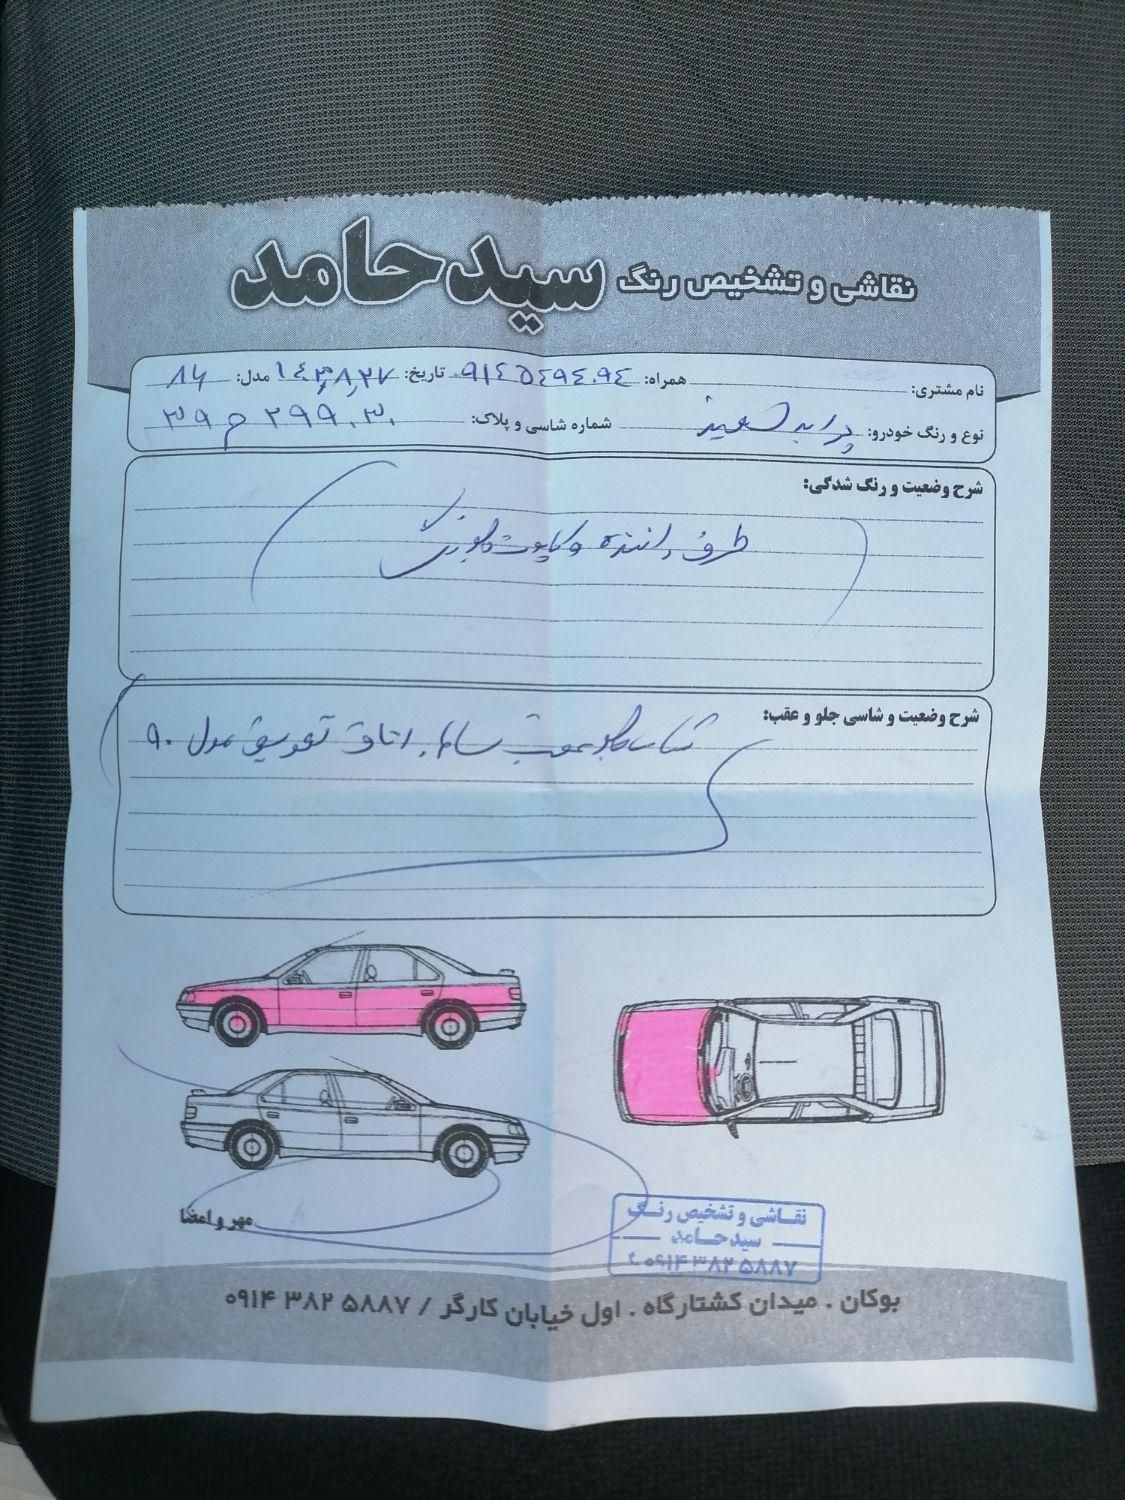 نقاشی و تشخیص رنگ سیدحامد
نام مشتری: همراه: ۹۱۴۵۴۹۴۰۹۴ تاریخ: مدل: ۸۶
نوع و رنگ خودرو: پراید سفید شماره شاسی و پلاک: ۳۰ ۲۹۹ م ۳۹
شرح وضعیت و رنگ شدگی:
طرف راننده و کاپوت جلو رنگ
شرح وضعیت و شاسی جلو و عقب:
شاسی جلو عقب سالم. اتاق تعویض مدل ۹۰
مهر و امضا
نقاشی و تشخیص رنگ
سیدحامد
۰۹۱۴ ۳۸۲ ۵۸۸۷
بوکان . میدان کشتارگاه . اول خیابان کارگر / ۵۸۸۷ ۳۸۲ ۰۹۱۴